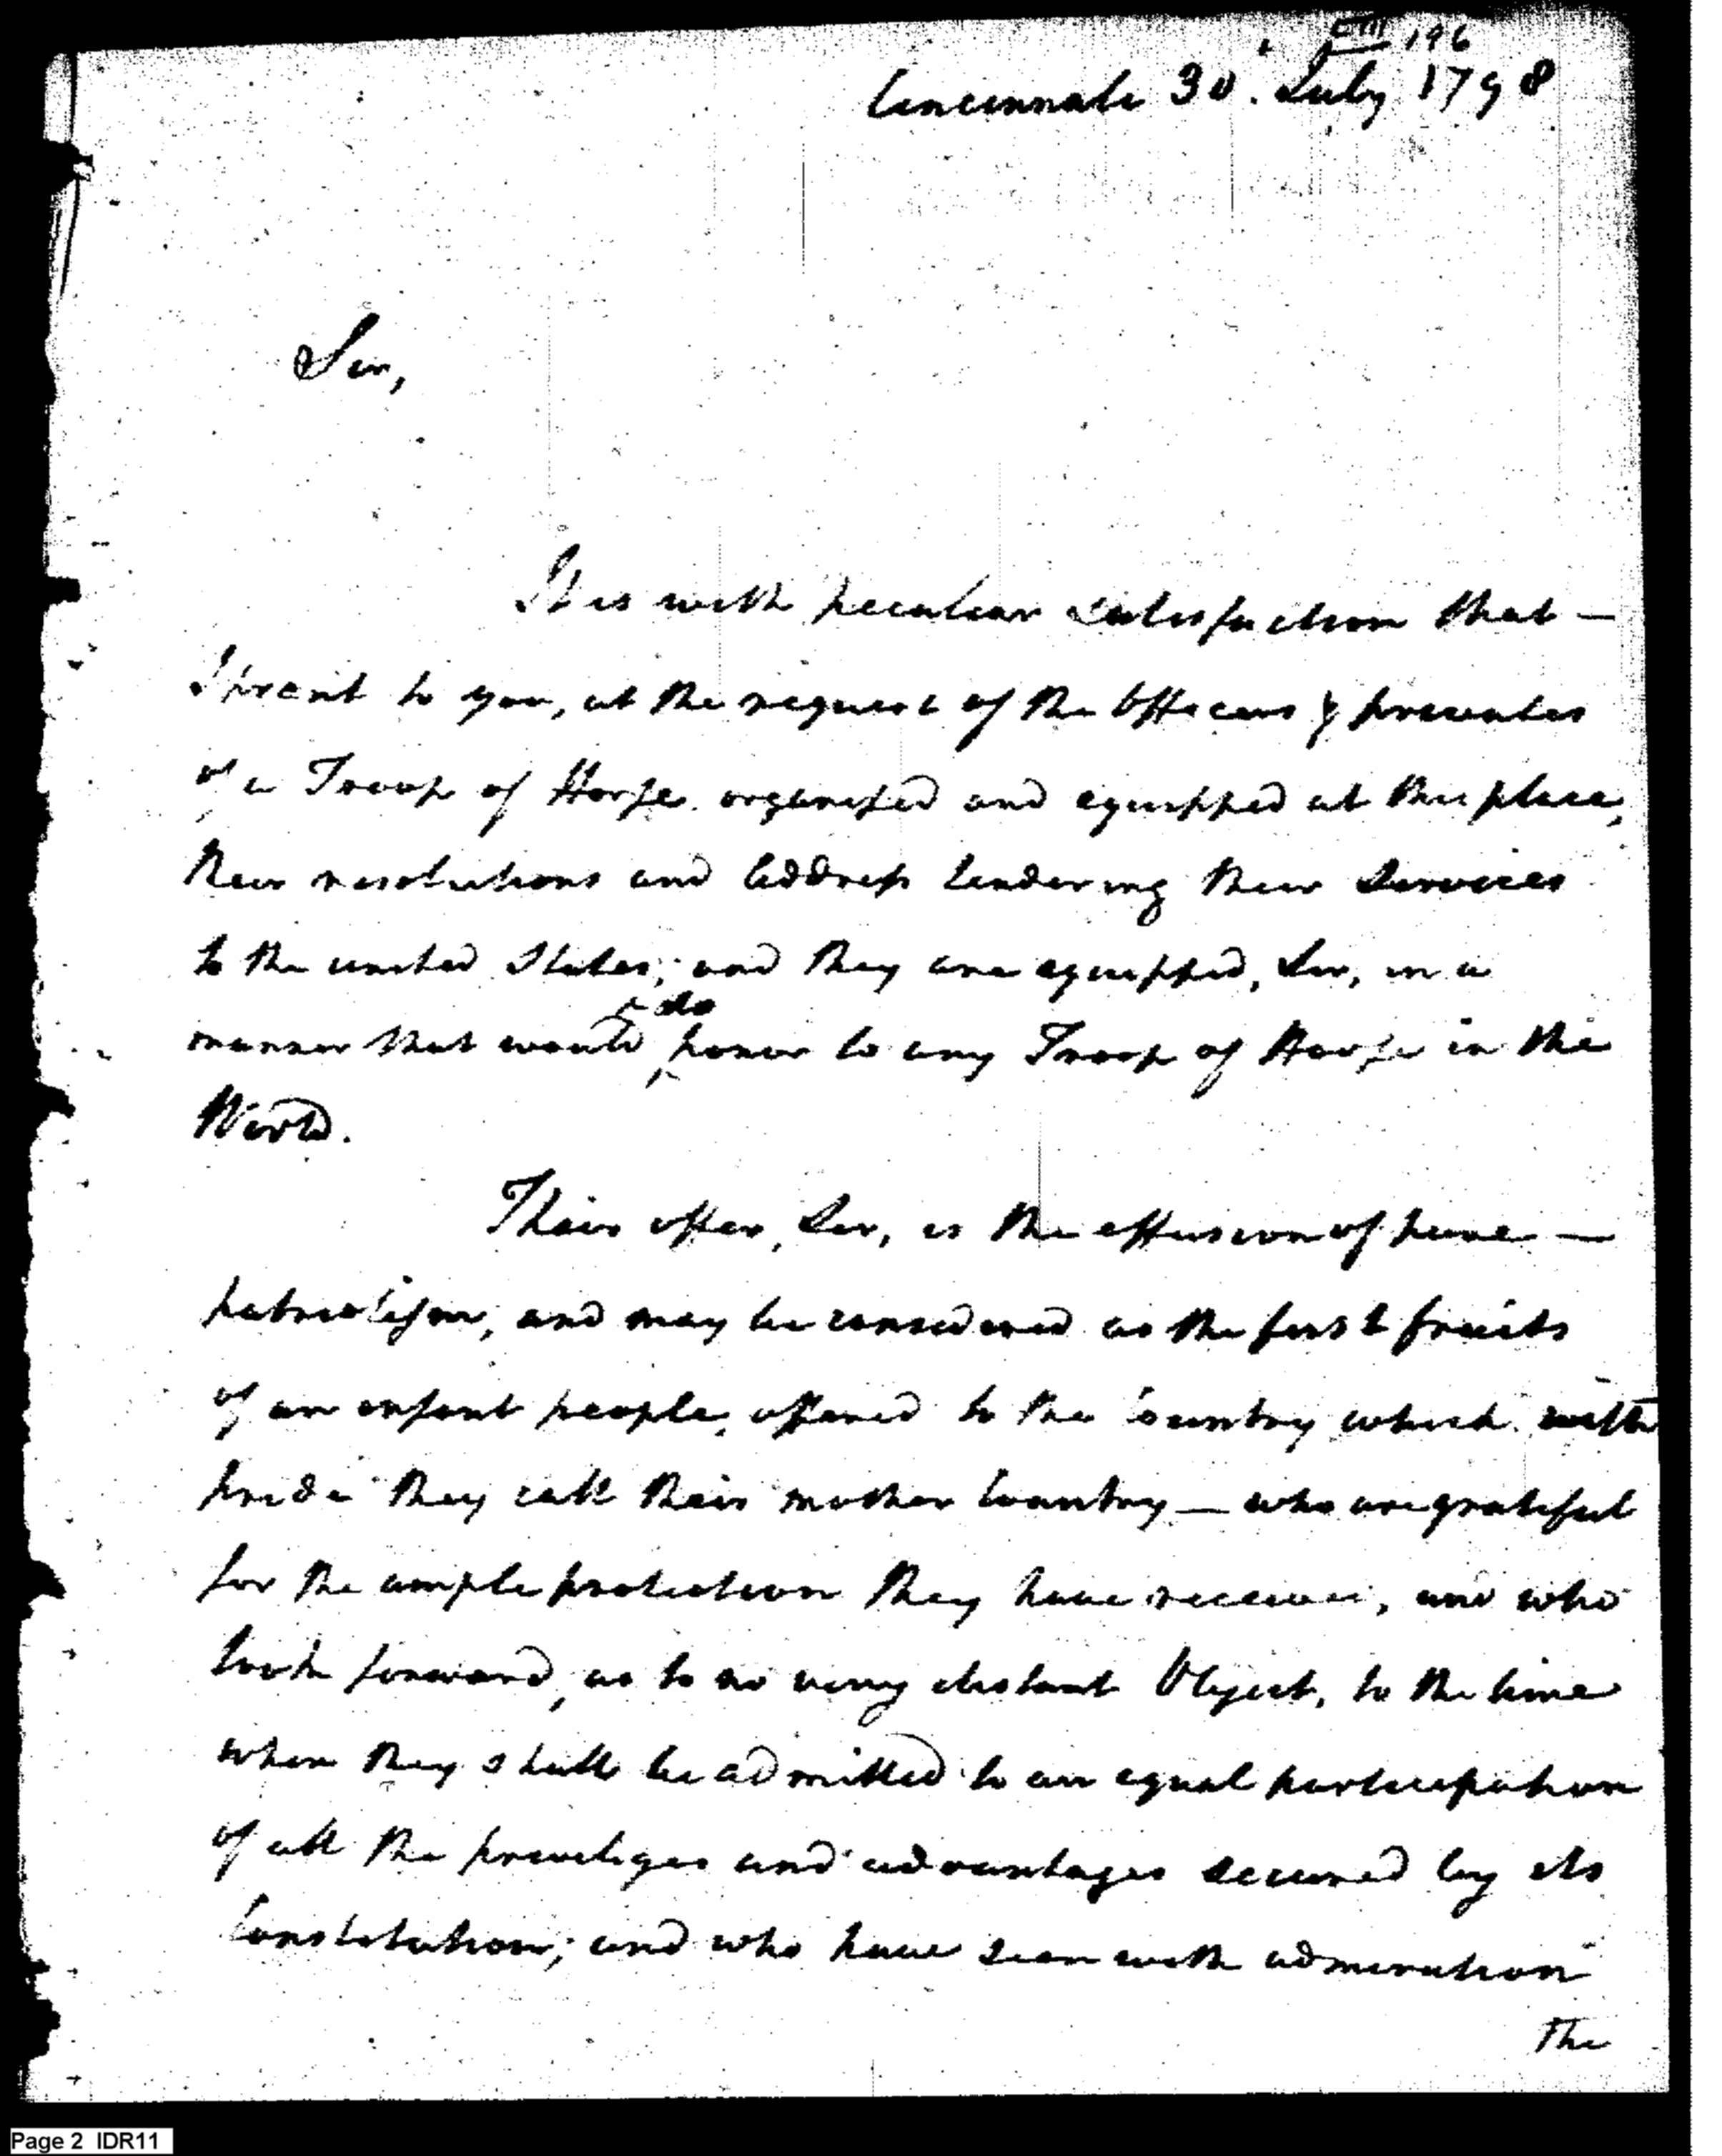 CIII 196
Cincinnati 30. July 1798
Sir,
It is with peculiar satisfaction that —
I present to you, at the request of the Officers & privates
of a Troop of Horse organised and equipped at this place,
their resolutions and Address tendering their Services
to the united States; and they are equipped, Sir, in a
do
manner that would honor to any Troop of Horse in the
World.
Their offer, Sir, is the effusion of pure —
patriotism, and may be considered as the first fruits
of an infant people, offered to the Country which with
pride they call their mother Country — who are grateful
for the ample protection they have received, and who
look forward, as to no very distant Object, to the time
when they shall be admitted to an equal participation
of all the priviliges and advantages secured by its
Constitution; and who have seen with admiration
the
Page 2 IDR11